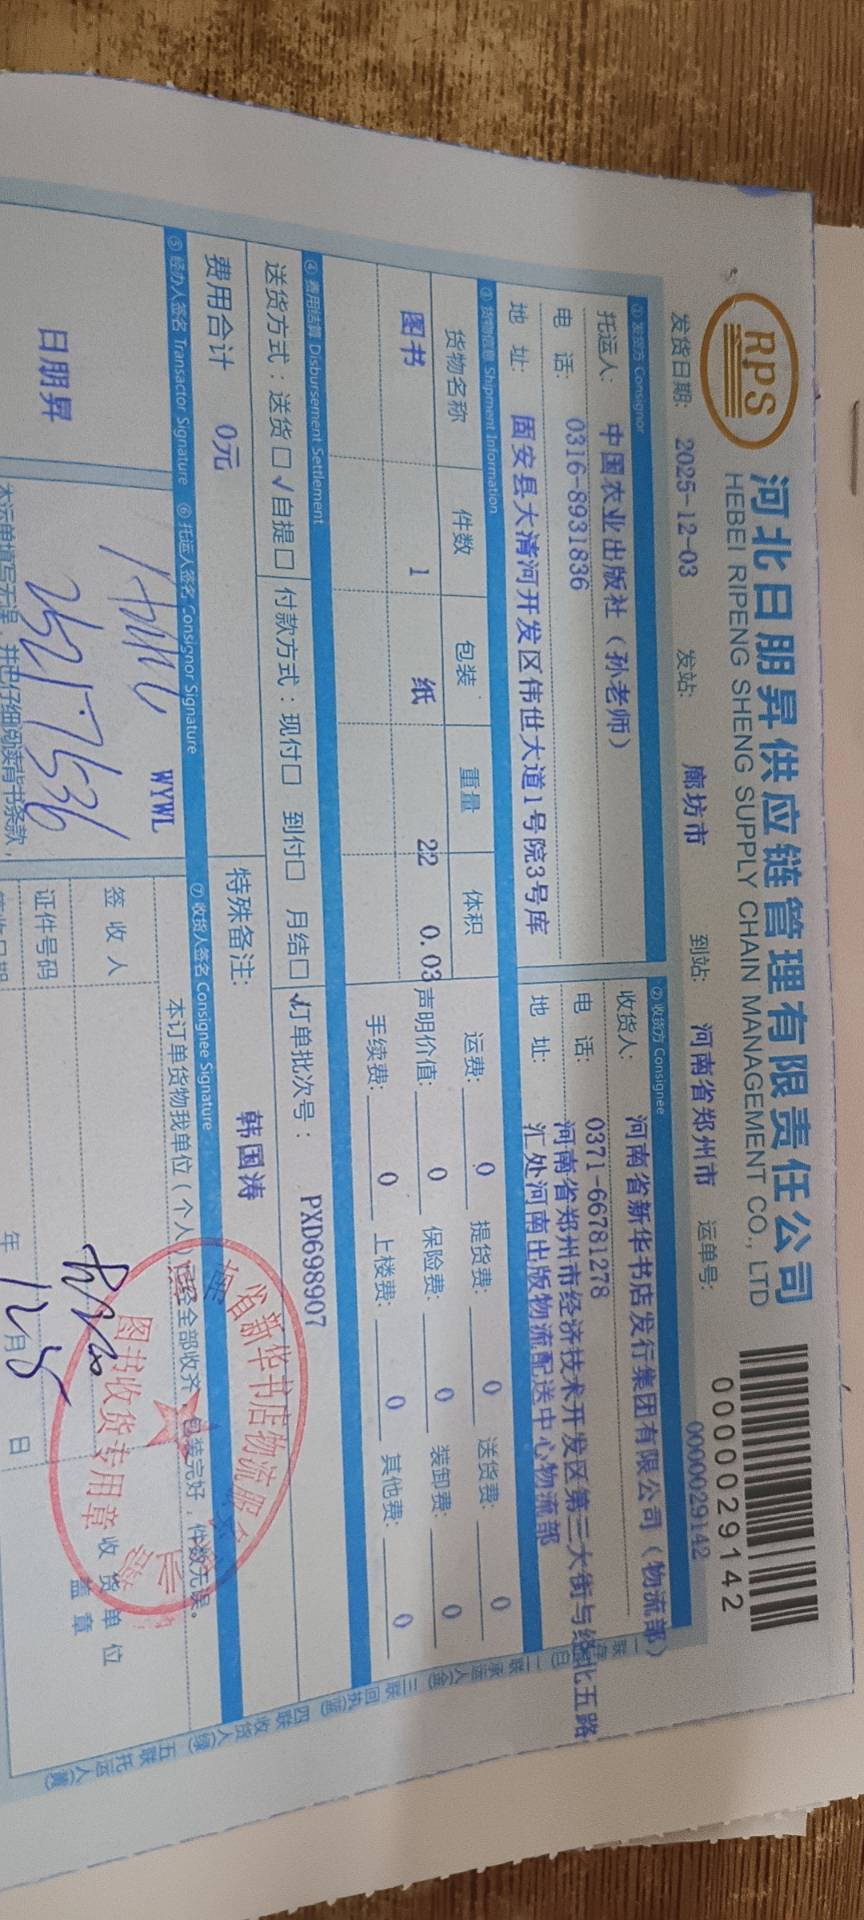 RPS
河北日朋昇供应链管理有限责任公司
HEBEI RIPENG SHENG SUPPLY CHAIN MANAGEMENT CO., LTD
0000029142
发货日期: 2025-12-03 发站: 廊坊市 到站: 河南省郑州市 运单号: 0000029142
① 发货方 Consignor ② 收货方 Consignee
托运人: 中国农业出版社（孙老师） 收货人: 河南省新华书店发行集团有限公司（物流部）
电 话: 0316-8931836 电 话: 0371-66781278
地 址: 固安县大清河开发区伟世大道1号院3号库 地 址: 河南省郑州市经济技术开发区第三大街与经北五路
汇处河南出版物流配送中心物流部
③ 货物信息 Shipment Information
货物名称 件数 包装 重量 体积 运费: 0 提货费: 0 送货费: 0
图书 1 纸 22 0.03 声明价值: 0 保险费: 0 装卸费: 0
手续费: 0 上楼费: 0 其他费: 0
④ 费用结算 Disbursement Settlement
送货方式：送货□ √自提□ 付款方式：现付□ 到付□ 月结□ √订单批次号： PXD698907
费用合计 0元 特殊备注: 韩国涛
⑤ 经办人签名 Transactor Signature ⑥ 托运人签名 Consignor Signature ⑦ 收货人签名 Consignee Signature
日朋昇 WYWL
本订单货物我单位（个人）已经全部收齐，包装完好，件数无误。
签 收 人 收 货 单 位
盖 章
证件号码
年 12月5日
本运单填写无误，并已仔细阅读背书条款，
省新华书店物流服
图书收货专用章